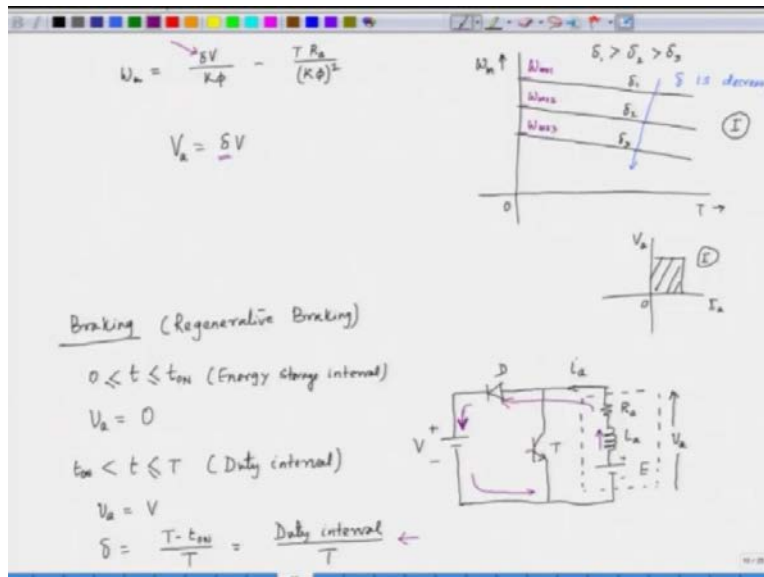 ωₘ = δV / Kφ − T Rₐ / (Kφ)²
Vₐ = δ V
δ₁ > δ₂ > δ₃
ωₘ ↑
ωₘ₀₁
δ₁
δ is decrea
ωₘ₀₂
δ₂
ωₘ₀₃
δ₃
I
0
T →
Vₐ
I
0
Iₐ
Braking (Regenerative Braking)
0 ≤ t ≤ t_ON (Energy storage interval)
Vₐ = 0
t_ON < t ≤ T (Duty interval)
Vₐ = V
δ = T - t_ON / T = Duty interval / T ←
D
iₐ
Rₐ
Lₐ
Vₐ
V
+
-
T
+
E